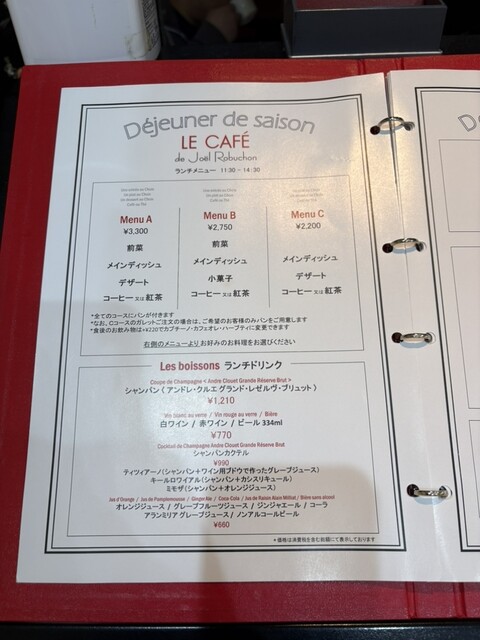 Déjeuner de saison
LE CAFÉ
de Joël Robuchon
ランチメニュー 11:30 - 14:30
Menu A
¥3,300
前菜
メインディッシュ
デザート
コーヒー 又は 紅茶
Menu B
¥2,750
前菜
メインディッシュ
小菓子
コーヒー 又は 紅茶
Menu C
¥2,200
メインディッシュ
デザート
コーヒー 又は 紅茶
*全てのコースにパンが付きます
*なお、Cコースのガレットご注文の場合は、ご希望のお客様のみパンをご用意します
*食後のお飲み物は+¥220でカプチーノ・カフェオレ・ハーブティに変更できます
右側のメニューより お好みのお料理をお選びください
Les boissons ランチドリンク
Coupe de Champagne < Andre Clouet Grande Réserve Brut >
シャンパン 〈 アンドレ・クルエ グランド・レゼルヴ・ブリュット 〉
¥1,210
Vin blanc au verre / Vin rouge au verre / Bière
白ワイン / 赤ワイン / ビール 334ml
¥770
Cocktail de Champagne André Clouet Grande Réserve Brut
シャンパンカクテル
¥990
ティツィアーノ(シャンパン+ワイン用ブドウで作ったグレープジュース)
キールロワイアル(シャンパン+カシスリキュール)
ミモザ(シャンパン+オレンジジュース)
Jus d'Orange / Jus de Pamplemousse / Ginger Ale / Coca-Cola / Jus de Raisin Alain Milliat / Bière sans alcool
オレンジジュース / グレープフルーツジュース / ジンジャエール / コーラ
アランミリア グレープジュース / ノンアルコールビール
¥660
*価格は消費税を含むお値段にて表示しております